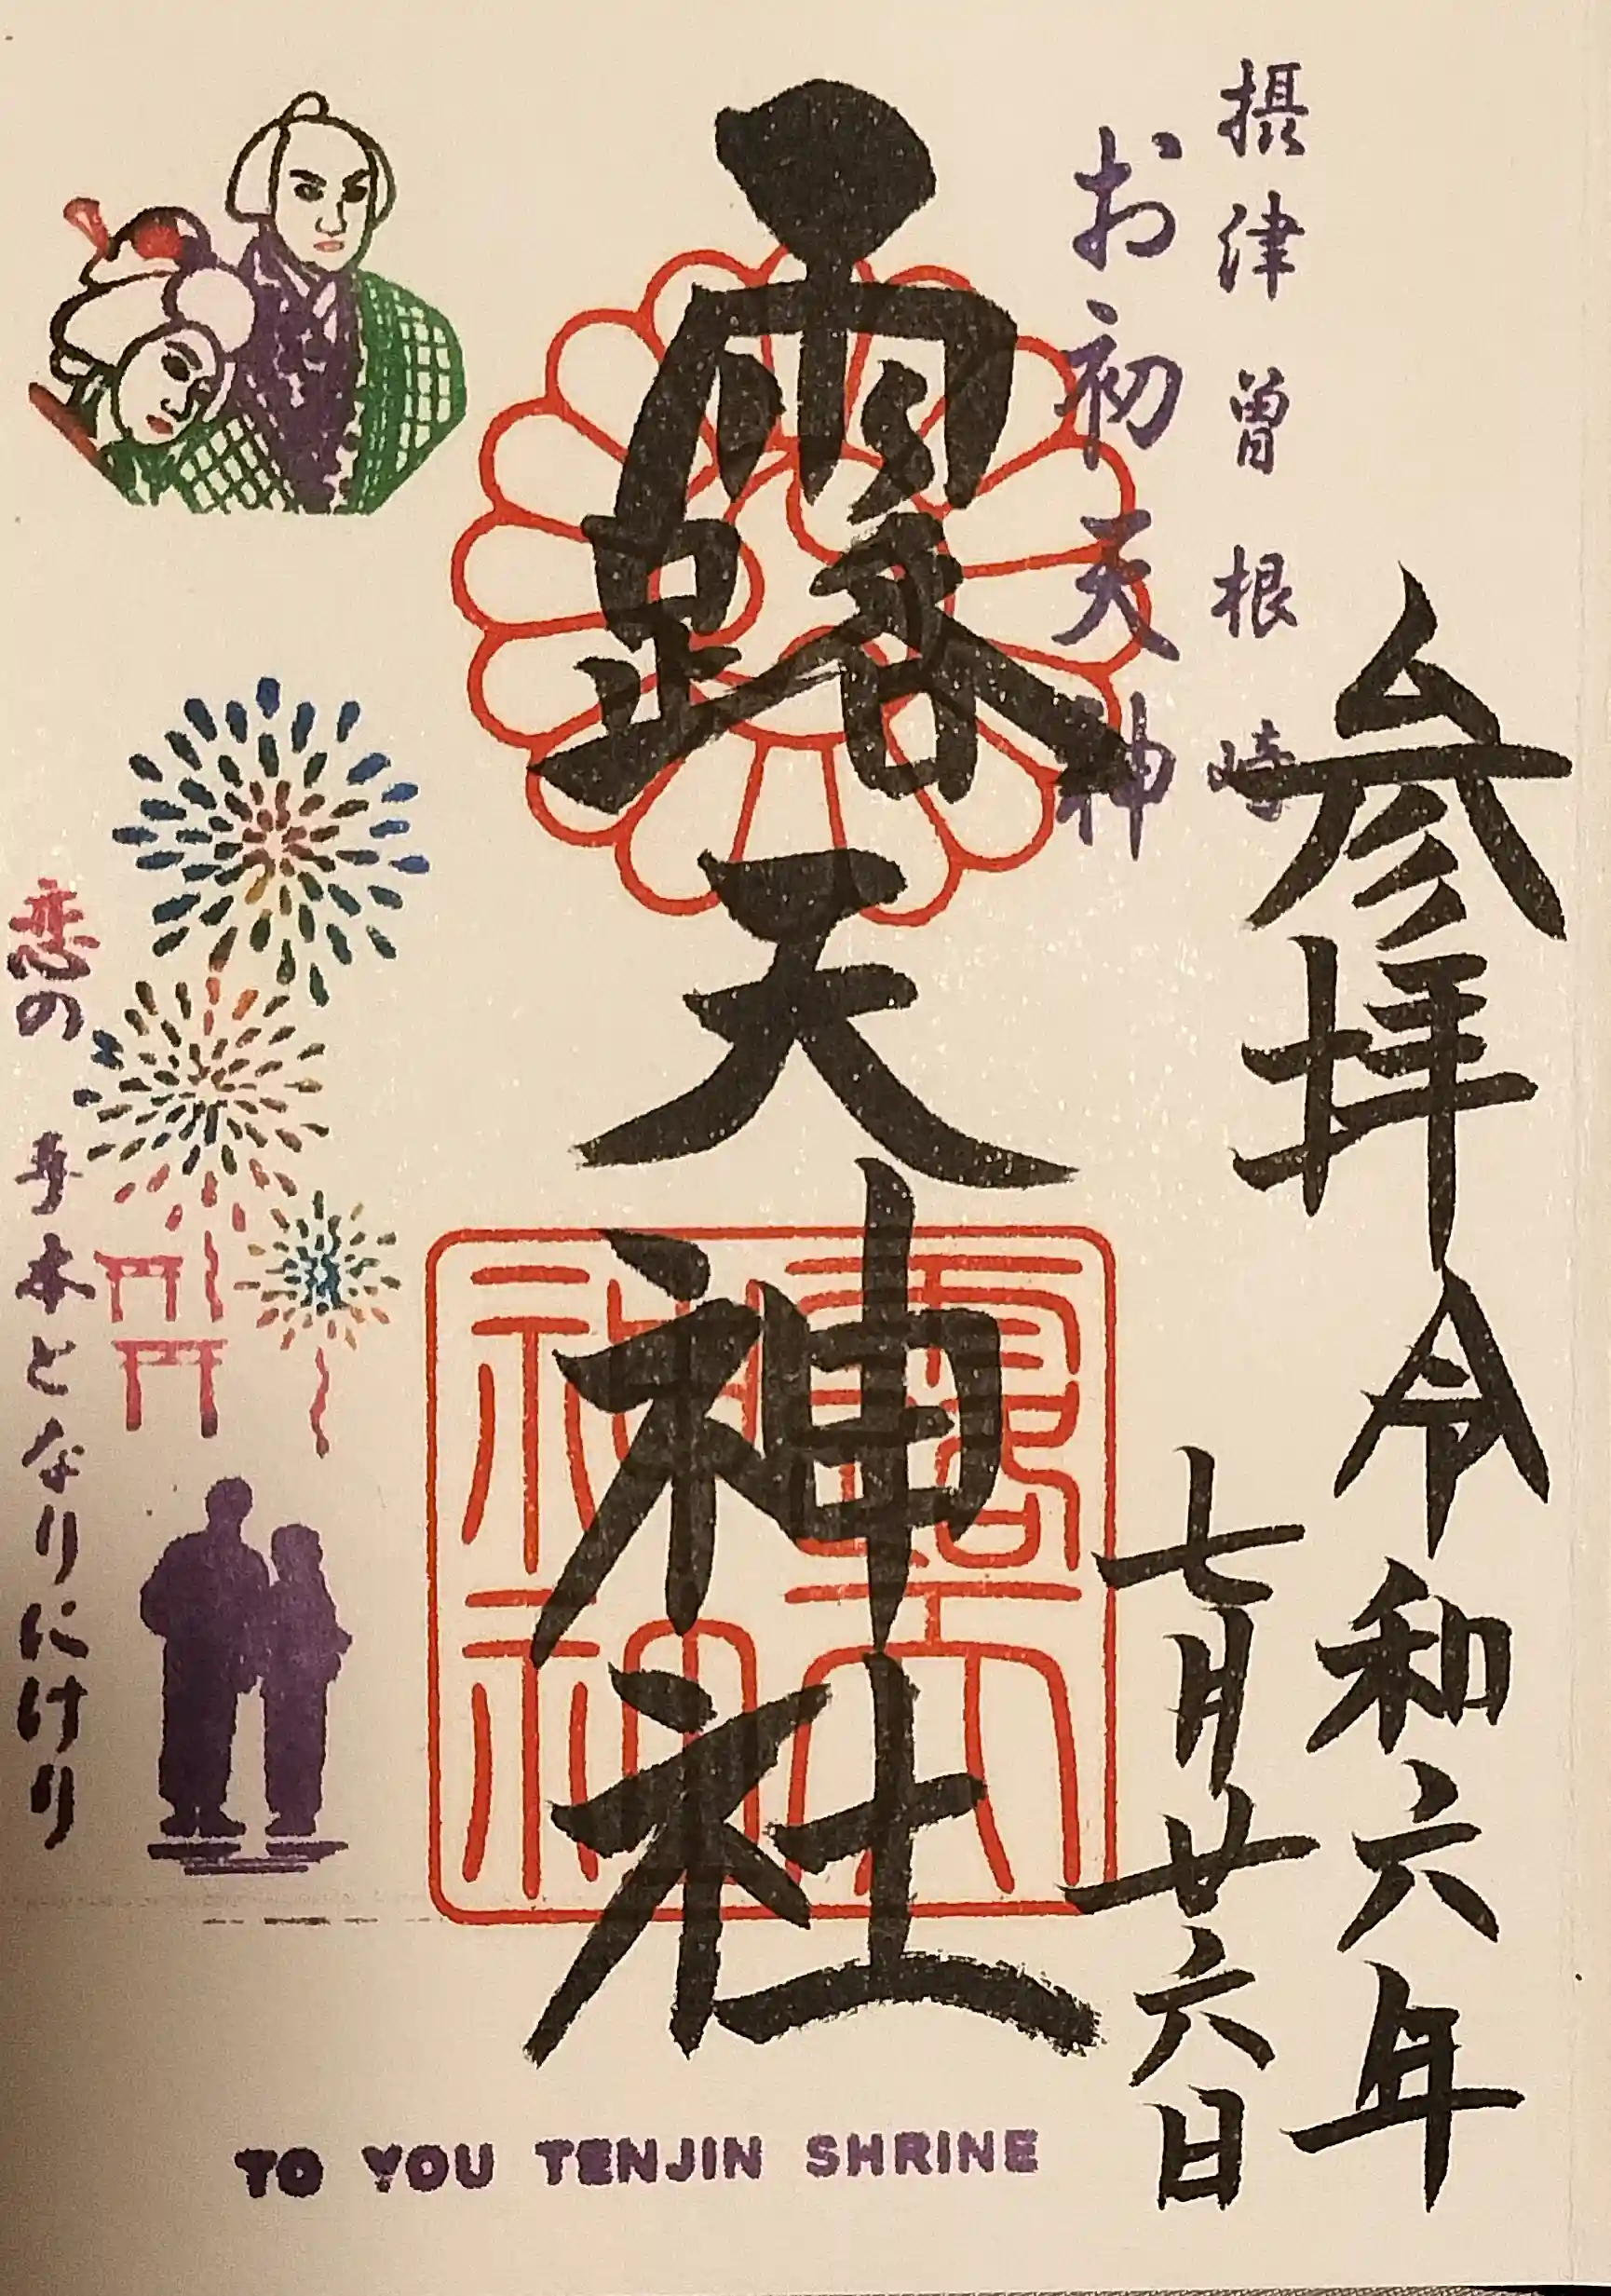 参拝令和六年
七月廿六日
摂津曽根崎
お初天神
露天神社
露天
神社
恋の手本となりにけり
TO YOU TENJIN SHRINE